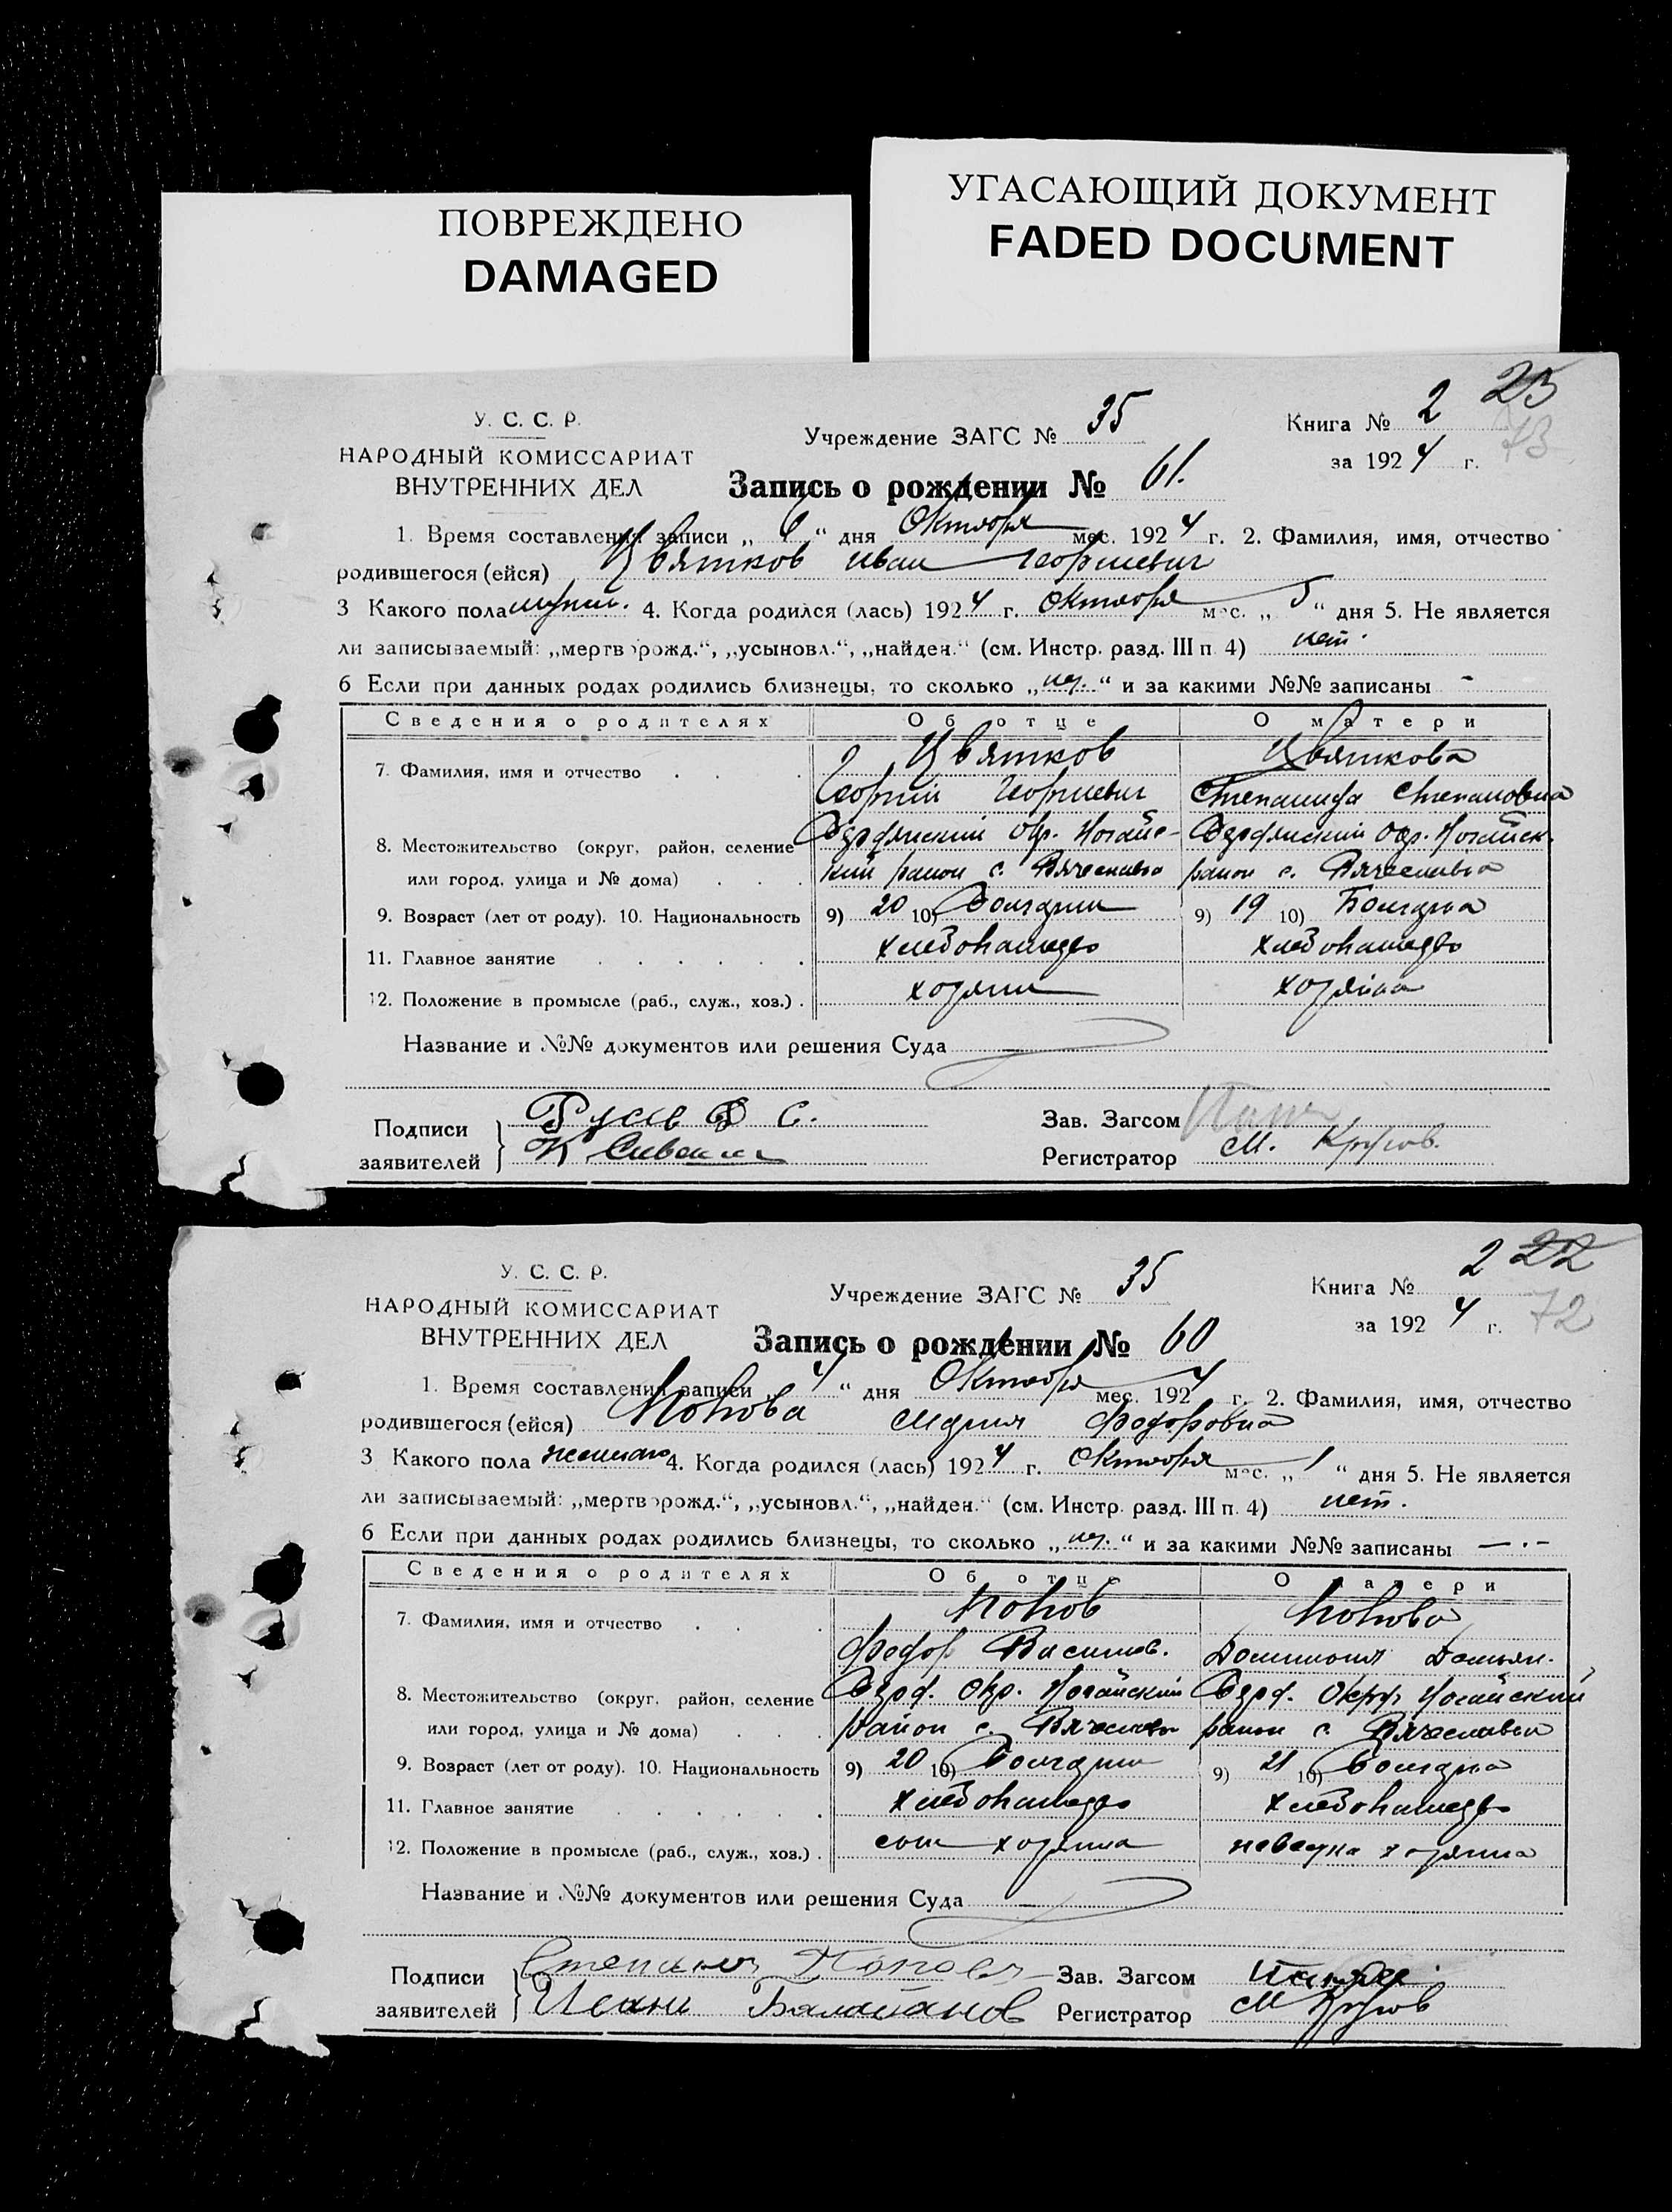 ПОВРЕЖДЕНО
DAMAGED
УГАСАЮЩИЙ ДОКУМЕНТ
FADED DOCUMENT
23
73
У. С. С. Р.
НАРОДНЫЙ КОМИССАРИАТ
ВНУТРЕННИХ ДЕЛ
Учреждение ЗАГС № 35
Книга № 2
за 1924 г.
Запись о рождении № 61.
1. Время составления записи „ 6 “ дня Октября мес. 1924 г. 2. Фамилия, имя, отчество
родившегося (ейся) Цвятков Иван Георгиевич
3 Какого пола мужск. 4. Когда родился (лась) 1924 г. Октября мес. „ 5 “ дня 5. Не является
ли записываемый: „мертворожд.“, „усыновл.“, „найден.“ (см. Инстр. разд. III п. 4) нет.
6 Если при данных родах родились близнецы, то сколько „ “ и за какими №№ записаны -
Сведения о родителях Об отце О матери
7. Фамилия, имя и отчество Цвятков Цвяткова
Георгий Георгиевич Степанида Степановна
8. Местожительство (округ, район, селение Бердянский окр. Ногайс- Бердянский окр. Ногайск.
или город, улица и № дома) кий район с. Вячеславка район с. Вячеславка
9. Возраст (лет от роду). 10. Национальность 9) 20 10) Болгарин 9) 19 10) Болгарка
11. Главное занятие хлебопашество хлебопашество
12. Положение в промысле (раб., служ., хоз.) хозяин хозяйка
Название и №№ документов или решения Суда
Подписи
заявителей
Зав. Загсом
Регистратор М.
22
72
У. С. С. Р.
НАРОДНЫЙ КОМИССАРИАТ
ВНУТРЕННИХ ДЕЛ
Учреждение ЗАГС № 35
Книга № 2
за 1924 г.
Запись о рождении № 60
1. Время составления записи „ 4 “ дня Октября мес. 1924 г. 2. Фамилия, имя, отчество
родившегося (ейся) Попова Мария Федоровна
3 Какого пола 4. Когда родился (лась) 1924 г. Октября мес. „ 1 “ дня 5. Не является
ли записываемый: „мертворожд.“, „усыновл.“, „найден.“ (см. Инстр. разд. III п. 4) нет.
6 Если при данных родах родились близнецы, то сколько „ “ и за какими №№ записаны — . -
Сведения о родителях Об отце О матери
7. Фамилия, имя и отчество Попов Попова
Федор Василев. Демьян.
8. Местожительство (округ, район, селение Берд. Окр. Ногайский Берд. Окр. Ногайский
или город, улица и № дома) район с. Вячеславка район с. Вячеславка
9. Возраст (лет от роду). 10. Национальность 9) 20 10) Болгарин 9) 21 10) Болгарка
11. Главное занятие хлебопашество хлебопашество
12. Положение в промысле (раб., служ., хоз.) сын хозяина невестка хозяина
Название и №№ документов или решения Суда
Подписи Степанъ Поповъ
заявителей Балабанов
Зав. Загсом
Регистратор М